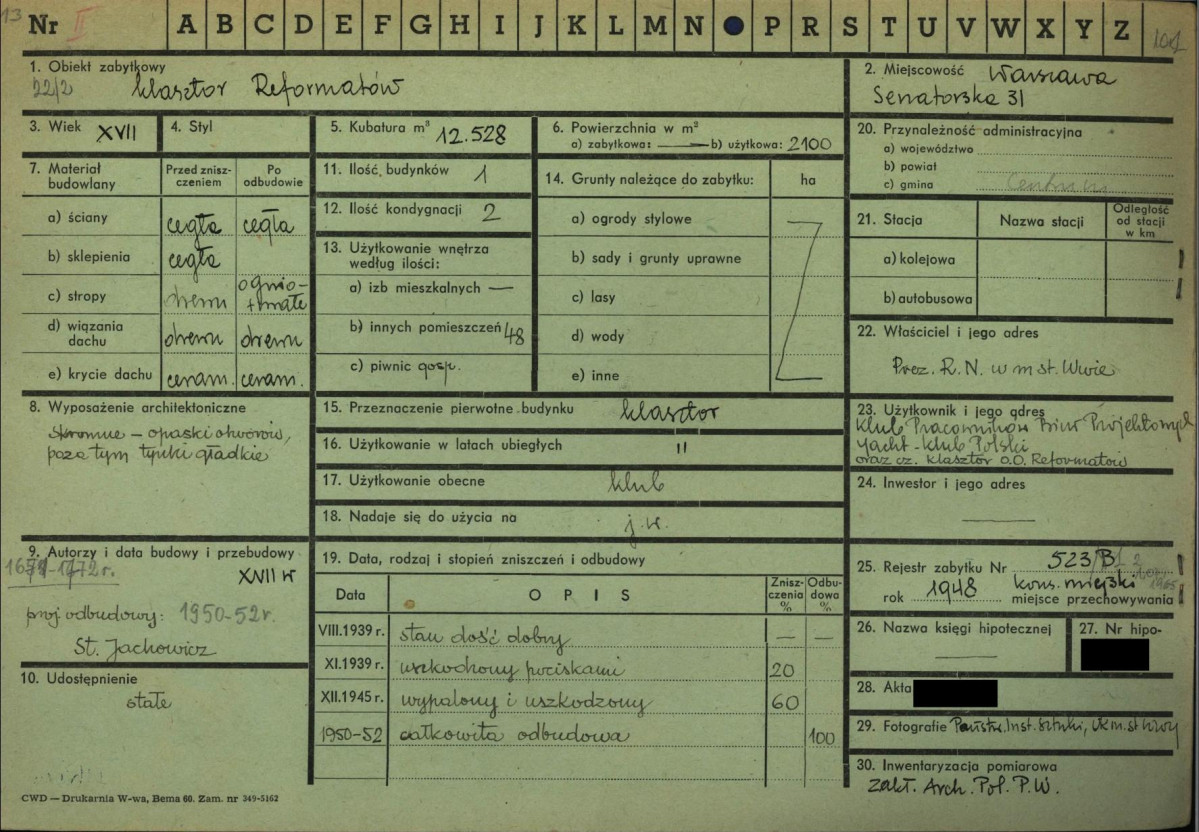 13
Nr II A B C D E F G H I J K L M N P R S T U V W X Y Z 101
1. Obiekt zabytkowy
22/2 klasztor Reformatów
2. Miejscowość Warszawa
Senatorska 31
3. Wiek XVII
4. Styl
5. Kubatura m³ 12.528
6. Powierzchnia w m²
a) zabytkowa: — b) użytkowa: 2100
20. Przynależność administracyjna
a) województwo
b) powiat
c) gmina Centrum
7. Materiał budowlany
Przed zniszczeniem
Po odbudowie
a) ściany cegła cegła
b) sklepienia cegła
c) stropy drewn ognio-trwałe
d) wiązania dachu drewn drewn
e) krycie dachu ceram. ceram.
11. Ilość budynków 1
12. Ilość kondygnacji 2
13. Użytkowanie wnętrza
według ilości:
a) izb mieszkalnych —
b) innych pomieszczeń 48
c) piwnic gosp.
14. Grunty należące do zabytku: ha
a) ogrody stylowe
b) sady i grunty uprawne
c) lasy
d) wody
e) inne
21. Stacja
Nazwa stacji
Odległość
od stacji
w km
a) kolejowa
b) autobusowa
22. Właściciel i jego adres
Prez. R.N. w m st. Wwie
8. Wyposażenie architektoniczne
skromne – opaski otworów,
poza tym tynki gładkie
15. Przeznaczenie pierwotne budynku klasztor
16. Użytkowanie w latach ubiegłych "
17. Użytkowanie obecne klub
18. Nadaje się do użycia na j.w.
23. Użytkownik i jego adres
Klub Pracowników Biur Projektowych
Yacht-Klub Polski
oraz cz. klasztor O.O. Reformatów
24. Inwestor i jego adres
—
9. Autorzy i data budowy i przebudowy
XVII w
proj. odbudowy: 1950-52 r.
St. Jachowicz
19. Data, rodzaj i stopień zniszczeń i odbudowy
Data
O P I S
Zniszczenia %
Odbudowa %
VIII.1939 r. stan dość dobry — —
XI.1939 r. uszkodzony pociskami 20
XII.1945 r. wypalony i uszkodzony 60
1950-52 całkowita odbudowa 100
25. Rejestr zabytku Nr 523/B
rok 1948 kons. miejski
miejsce przechowywania
26. Nazwa księgi hipotecznej
—
27. Nr hipo-
10. Udostępnienie
stałe
28. Akta
29. Fotografie Państw. Inst. Sztuki,
30. Inwentaryzacja pomiarowa
Zakł. Arch. Pol. P.W.
CWD — Drukarnia W-wa, Bema 60. Zam. nr 349-5162